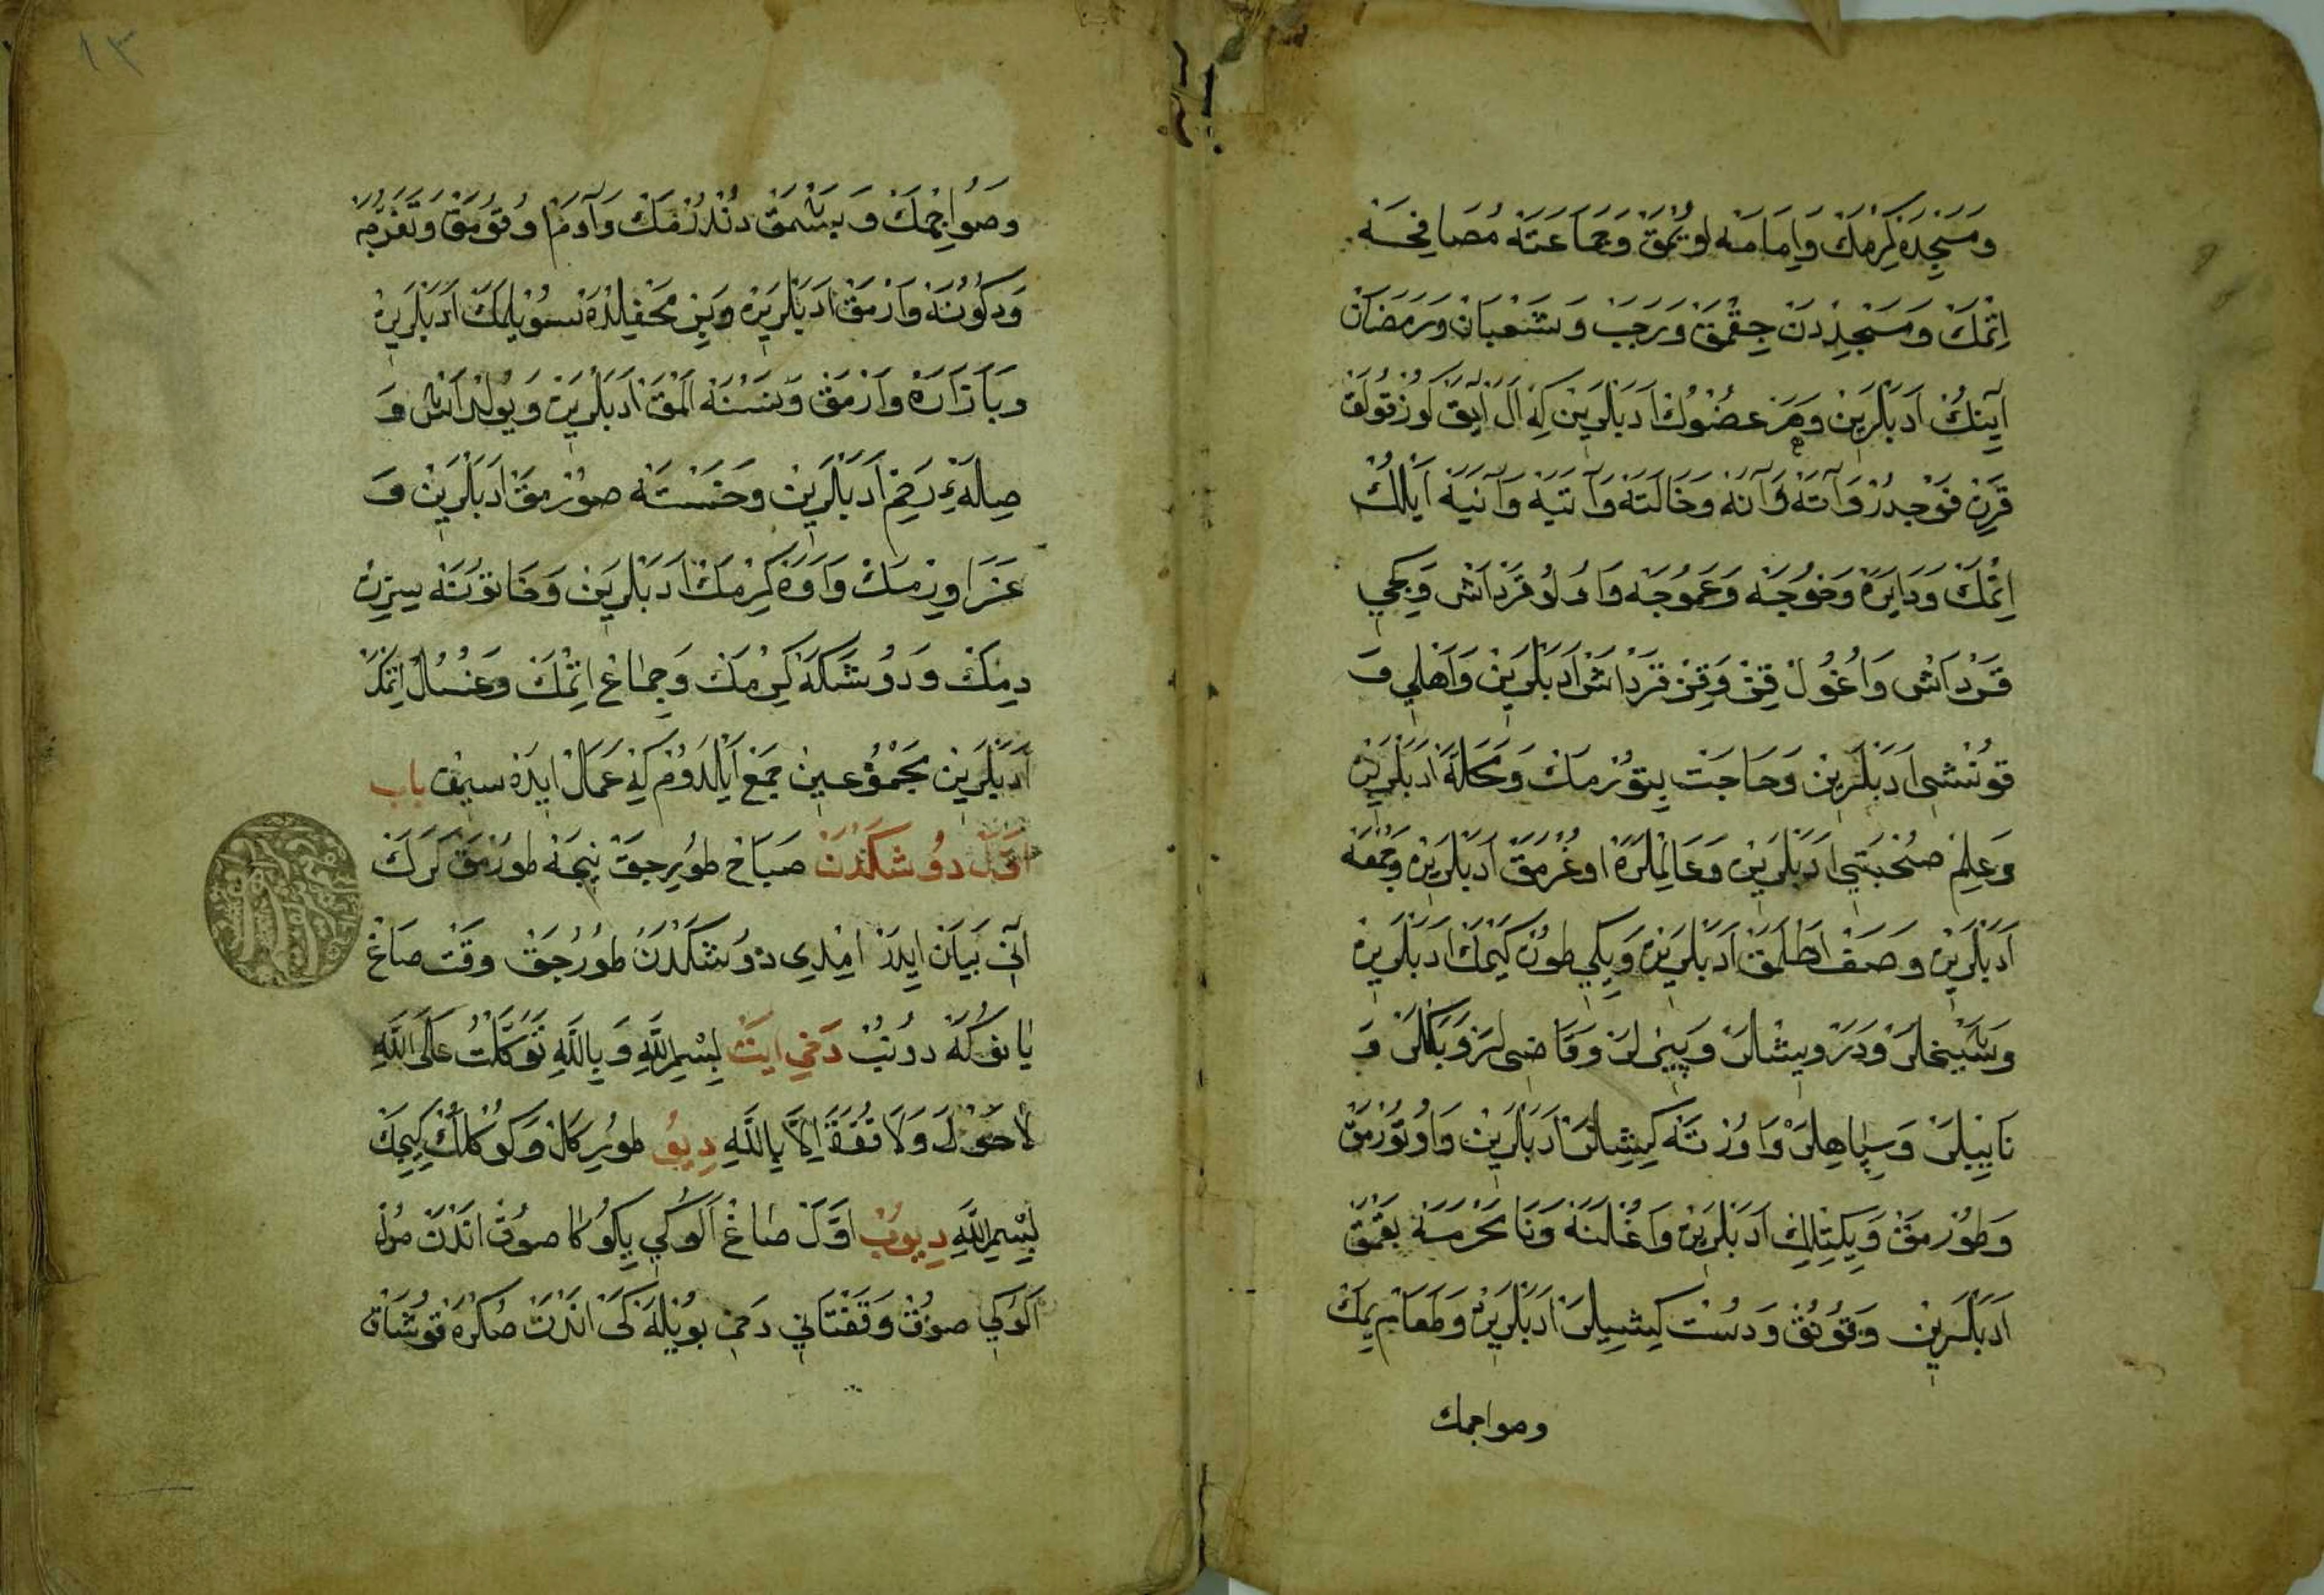 وَمَسْجِدَه كِرْمَكْ وَاِمَامَه اُويْمَقْ وَجَمَاعَتَه مُصَافَحَه
اِتْمَكْ وَمَسْجِدْدَنْ چِقْمَقْ وَرَجَبْ وَشَعْبَانْ وَرَمَضَانْ
آيِنُكْ اَدَبْلَرِينْ وَهَرْ عُضْوُكْ اَدَبْلَرِينْ كِه اَلْ اَيَقْ كُوزْ قُولَقْ
قَرِنْ فَرْجْدُرْ وَآتَه وَآنَه وَخَالَتَه وَآتَيَه وَآنَيَه اَيْلِكْ
اِتْمَكْ وَدَايَرَه وَخُوجَه وَعَمُوجَه وَاُولُو قَرْدَاشْ وَكِجِي
قَرْدَاشْ وَاُغُولْ قِزْ وَقِزْ قَرْدَاشْ اَدَبْلَرِينْ وَاَهْلِي وَ
قُونْشِي اَدَبْلَرِينْ وَحَاجَتْ بِتُورْمَكْ وَمَحَلَّه اَدَبْلَرِينْ
وَعِلِمْ صُحْبَتِي اَدَبْلَرِينْ وَعَالِمْلَرَه اُوغْرَمَقْ اَدَبْلَرِينْ وَجُمْعَه
اَدَبْلَرِينْ وَصَفْ اَطْلَمَقْ اَدَبْلَرِينْ وَيِكِي طُونْ كَيْمَكْ اَدَبْلَرِينْ
وَشَيْخْلَرْ وَدَرْوِيشْلَرْ وَبَيْلَرْ وَقَاضِيلَرْ وَبَكْلَرْ وَ
نَايِبْلَرْ وَسِپَاهِلَرْ وَاُورْتَه كِيشِلَرْ اَدَبْلَرِينْ وَاُوتُورْمَقْ
وَطُورْمَقْ وَيِكِتْلِكْ اَدَبْلَرِينْ وَاُغْلَنَه وَنَامَحْرَمَه بَقْمَقْ
اَدَبْلَرِينْ وَقُونُقْ وَدُسْتْ كِيشِيلَرْ اَدَبْلَرِينْ وَطَعَامْ يِمَكْ
وصواجمك
وَصُو اِچْمَكْ وَبَشْمَقْ دُنْدُرْمَكْ وَآدَمْ اُوقُومَقْ وَتَفَرُّجَه
وَدُكُونَه وَارْمَقْ اَدَبْلَرِينْ وَبِرْ مَحْفِلْدَه سُويْلَمَكْ اَدَبْلَرِينْ
وَبَازَارَه وَارْمَقْ وَنَسْنَه اَلْمَقْ اَدَبْلَرِينْ وَيُولْدَاشْ وَ
صِلَهءِ رَحِمْ اَدَبْلَرِينْ وَخَسْتَه صُورْمَقْ اَدَبْلَرِينْ وَ
عَزَا وِيرْمَكْ وَاَوَه كِرْمَكْ اَدَبْلَرِينْ وَخَاتُونَه سِرِّنْ
دِمَكْ وَدُوشَكَه كِرْمَكْ وَجِمَاعْ اِتْمَكْ وَغُسُلْ اِتْمَكْ
اَدَبْلَرِينْ مَجْمُوعِينْ جَمْعْ اَيْلَدُومْ كِه عَمَلْ اِيدَه سِينْ بَاب
اَوَّلْ دُوشَكْدَنْ صَبَاحْ طُورِيجَقْ نِيجَه طُورْمَقْ كَرَكْ
آنِي بَيَانْ اِيدَرْ اِمْدِي دُوشَكْدَنْ طُورُجَقْ وَقْتْ صَاغْ
يَانُكَه دُونُبْ دَخِي اَيِتْ بِسْمِ اللّٰهِ وَبِاللّٰهِ تَوَكَّلْتُ عَلَى اللّٰهِ
لَا حَوْلَ وَلَا قُوَّةَ اِلَّا بِاللّٰهِ دِيُو طُورِ كَلْ وَكُوكْلَكْ كِيجَكْ
بِسْمِ اللّٰهِ دِيُوبْ اَوَّلْ صَاغْ اَلُوكِي يِكُوكَا صُوقْ اَنْدَنْ صُولْ
اَلُوكِي صُوقْ وَقَفْتَانِي دَخِي بُويْلَه كَيْ اَنْدَنْ صُكْرَه قُوشَاقْ